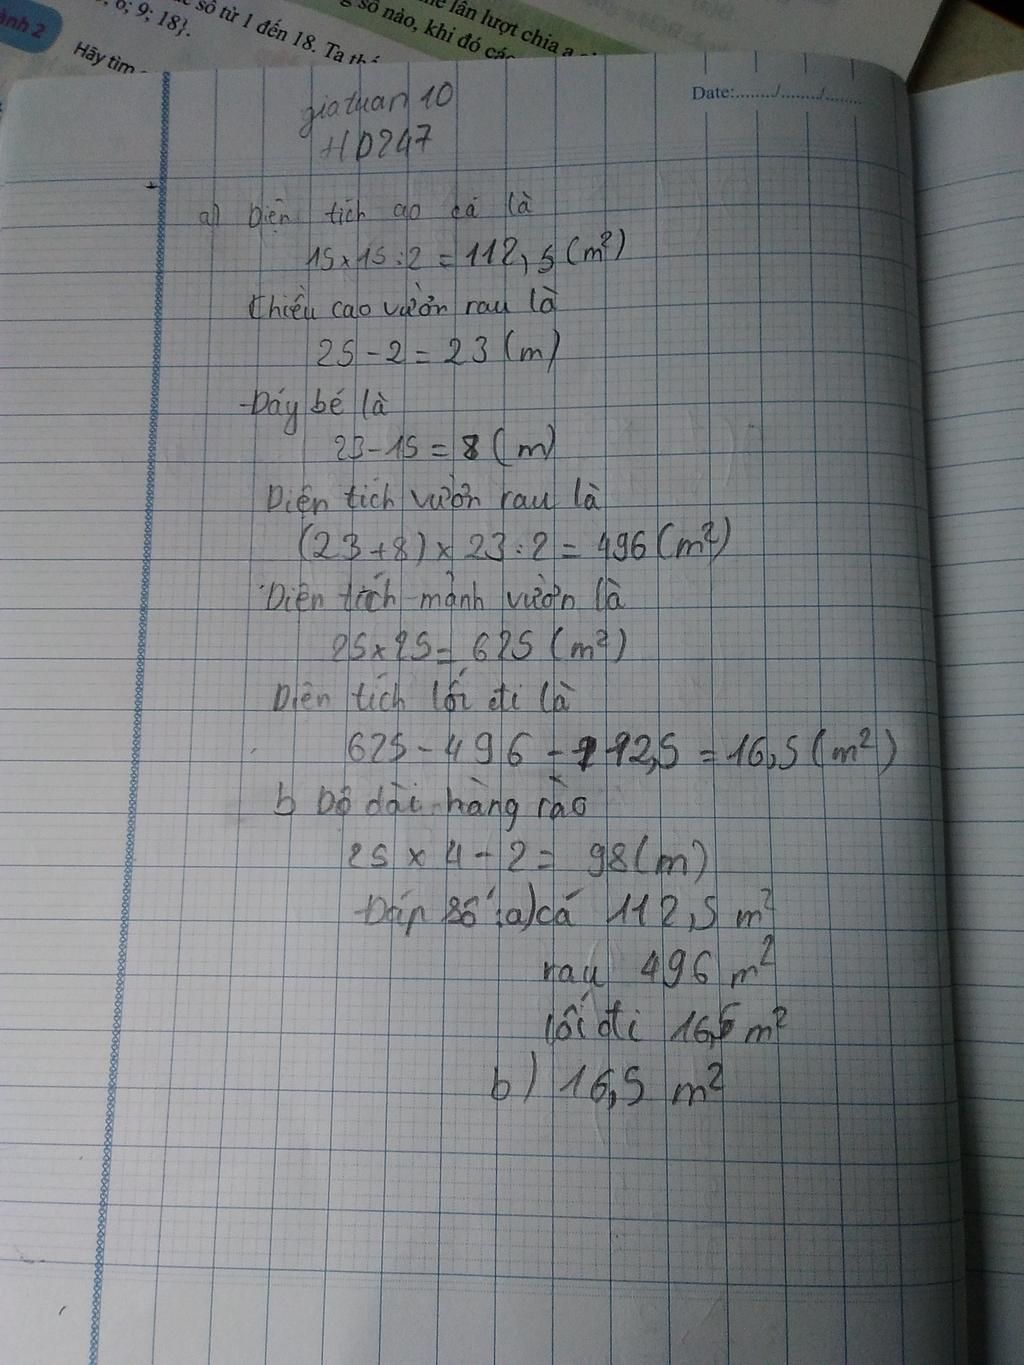 ành 2
; 6; 9; 18}.
số từ 1 đến 18. Ta
số nào, khi đó
lần lượt chia a
Hãy tìm
Date:......./......./.......
giatuan 10
HD247
a) Diện tích ao cá là
15 x 15 : 2 = 112,5 (m²)
Chiều cao vườn rau là
25 - 2 = 23 (m)
Đáy bé là
23 - 15 = 8 (m)
Diện tích vườn rau là
(23 + 8) x 23 : 2 = 496 (m²)
Diện tích mảnh vườn là
25 x 25 = 625 (m²)
Diện tích lối đi là
625 - 496 - 112,5 = 16,5 (m²)
b Độ dài hàng rào
25 x 4 - 2 = 98 (m)
Đáp số : a) cá 112,5 m²
rau 496 m²
lối đi 16,5 m²
b) 16,5 m²